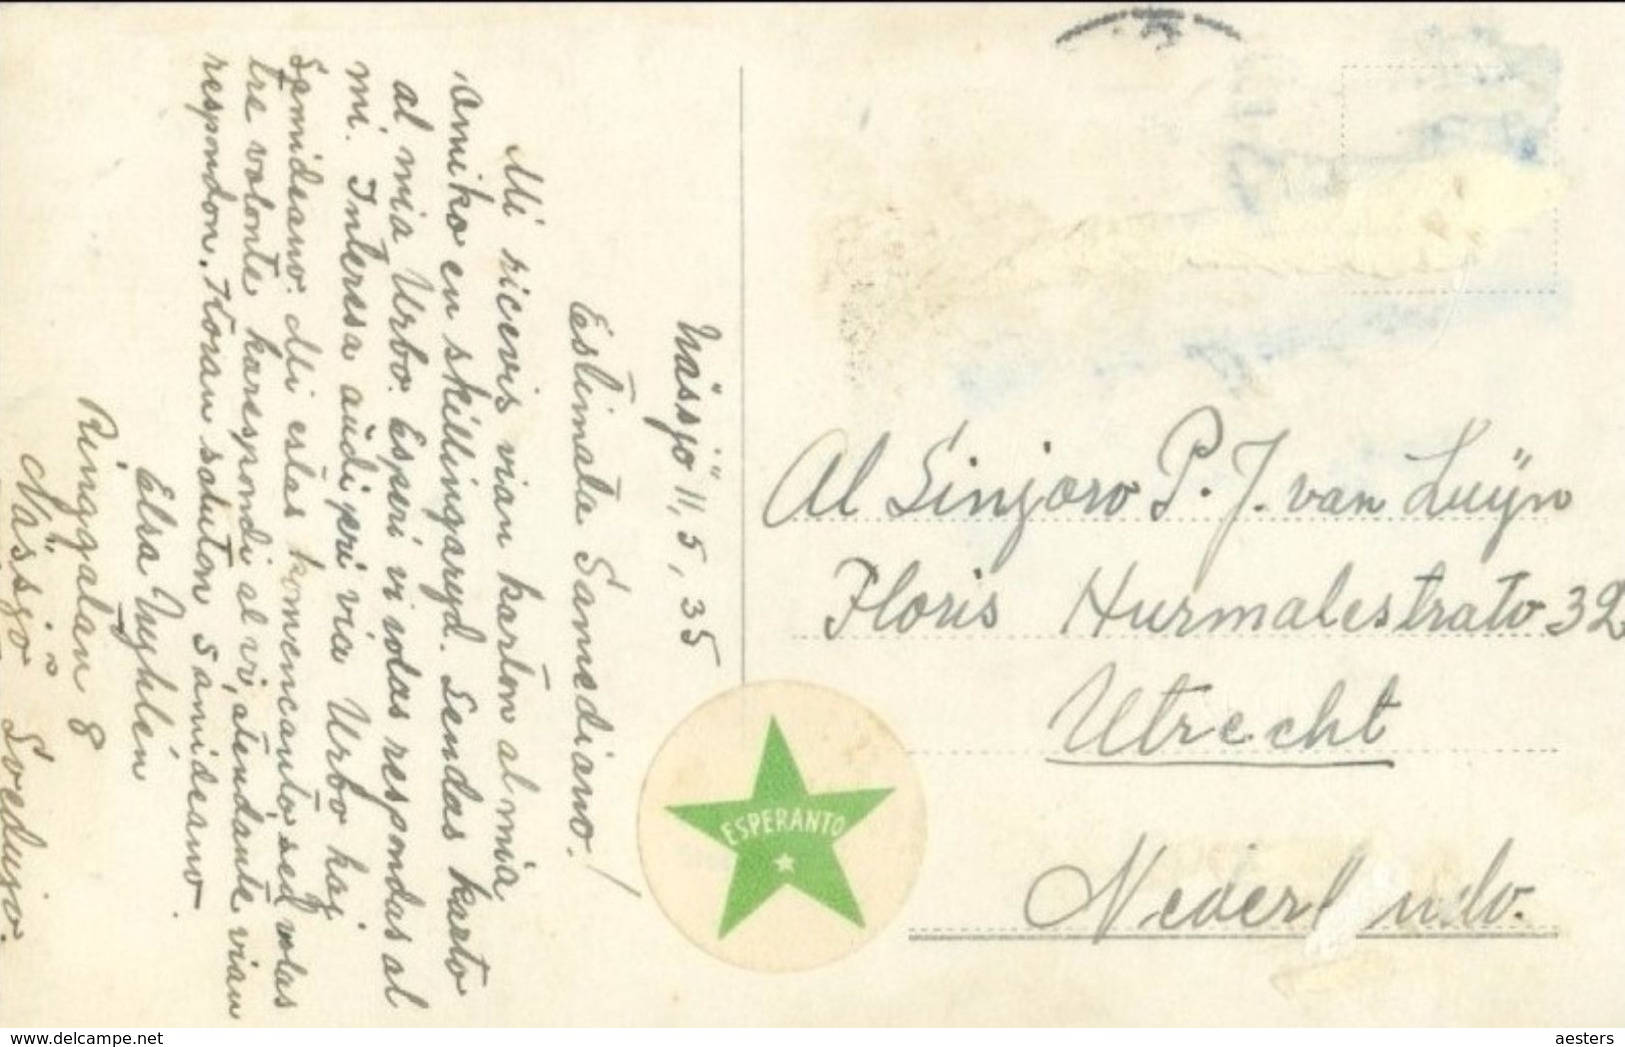 Nässjö 11, 5, 35
Estimata Samediano!
Mi ricevis vian karton al mia
amiko en skillingaryd. Sendas karto
al mia Urbo. Esperi vi volas respondas al
mi. Interesa aŭdi pri via Urbo kaj
Samideano. Mi estas komencanto, sed volas
tre volonte korespondi al vi, atendante vian
respondon. Koran saluton Samideano.
Elsa Nyhlén
Ringgatan 8
Nässjö Svedujo.
Al Sinjoro P. J. van Luÿn
Floris Hurmalestrato 32
Utrecht
Nederlando.
ESPERANTO
delcampe.net
aesters